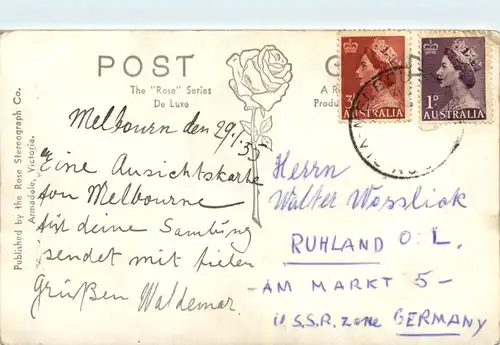 POST
The "Rose" Series
De Luxe
A R
Produ
3
AUSTRALIA
1D
AUSTRALIA
Published by the Rose Stereograph Co.
Armadale, Victoria.
Melbourn den 29.1.55
Eine Ansichtskarte
von Melbourne
für deine Samlung
sendet mit vielen
Grüßen Waldemar.
Herrn
Walter Wossliok
RUHLAND O.L.
-AM MARKT 5-
U.S.S.R. zone GERMANY